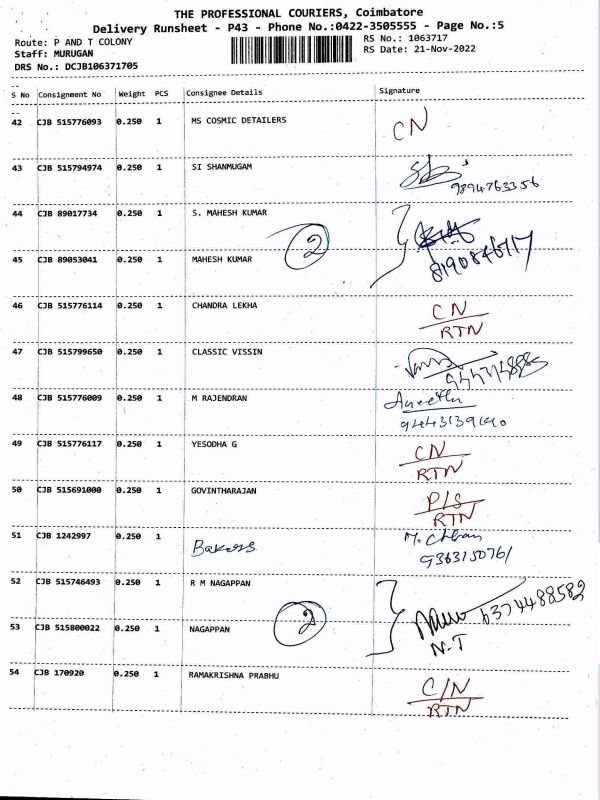 THE PROFESSIONAL COURIERS, Coimbatore
Delivery Runsheet - P43 - Phone No.:0422-3505555 - Page No.:5
Route: P AND T COLONY RS No.: 1063717
Staff: MURUGAN RS Date: 21-Nov-2022
DRS No.: DCJB106371705
S No Consignment No Weight PCS Consignee Details Signature
42 CJB 515776093 0.250 1 MS COSMIC DETAILERS CN
43 CJB 515794974 0.250 1 SI SHANMUGAM
9894763356
44 CJB 89017734 0.250 1 S. MAHESH KUMAR
2
45 CJB 89053041 0.250 1 MAHESH KUMAR 8190846717
46 CJB 515776114 0.250 1 CHANDRA LEKHA CN
RTN
47 CJB 515799650 0.250 1 CLASSIC VISSIN
48 CJB 515776009 0.250 1 M RAJENDRAN
49 CJB 515776117 0.250 1 YESODHA G CN
RTN
50 CJB 515691000 0.250 1 GOVINTHARAJAN P/S
RTN
51 CJB 1242997 0.250 1 Bakers
9363150761
52 CJB 515746493 0.250 1 R M NAGAPPAN 6374488582
2
53 CJB 515800022 0.250 1 NAGAPPAN N.T
54 CJB 170920 0.250 1 RAMAKRISHNA PRABHU C/N
RTN